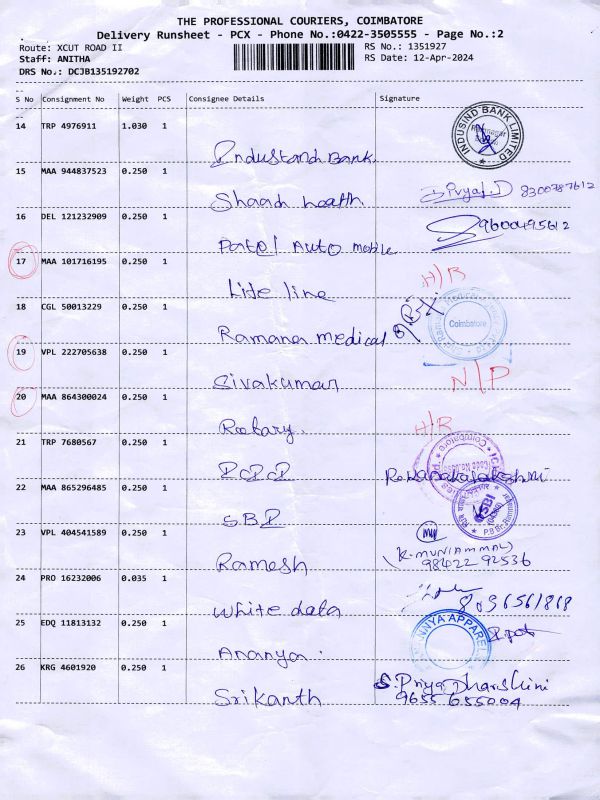 THE PROFESSIONAL COURIERS, COIMBATORE
Delivery Runsheet - PCX - Phone No.:0422-3505555 - Page No.:2
Route: XCUT ROAD II
RS No.: 1351927
Staff: ANITHA
RS Date: 12-Apr-2024
DRS No.: DCJB135192702
S No Consignment No Weight PCS Consignee Details Signature
14 TRP 4976911 1.030 1 Industand Bank INDUSIND BANK LIMITED
15 MAA 944837523 0.250 1 Shaadi 8300787612
16 DEL 121232909 0.250 1 Patel Auto mobile 9600495612
17 MAA 101716195 0.250 1 Life line H/R
18 CGL 50013229 0.250 1 Ramana medical Coimbatore
19 VPL 222705638 0.250 1 Sivakumar N/P
20 MAA 864300024 0.250 1 Rotary. H/R
21 TRP 7680567 0.250 1 Coimbatore
22 MAA 865296485 0.250 1 SBI SBI
23 VPL 404541589 0.250 1 Ramesh (K. MUNIAMMAL)
98422 92536
24 PRO 16232006 0.035 1 White data
25 EDQ 11813132 0.250 1 Ananya. APPAREL
26 KRG 4601920 0.250 1 Srikanth S. Priya Dharshini
9655 655004